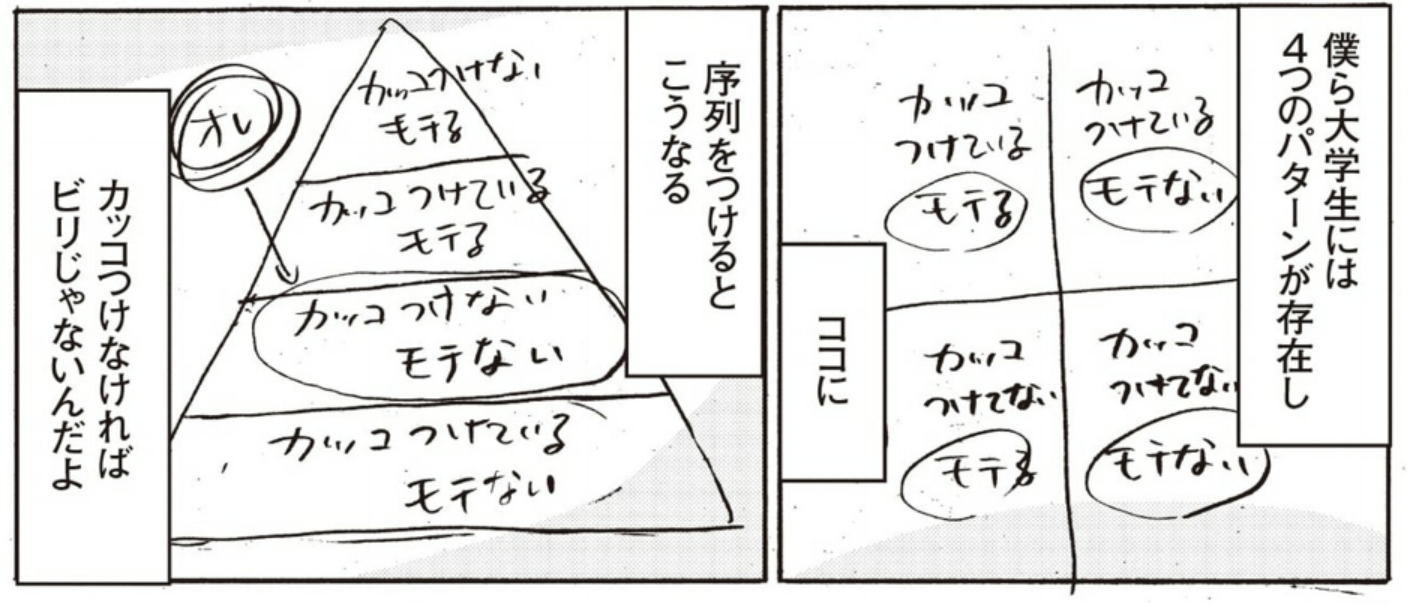 僕ら大学生には
４つのパターンが存在し
カッコ
つけている
モテない
カッコ
つけている
モテる
カッコ
つけてない
モテない
カッコ
つけてない
モテる
ココに
序列をつけると
こうなる
カッコつけない
モテる
カッコつけている
モテる
カッコつけない
モテない
カッコつけている
モテない
オレ
カッコつけなければ
ビリじゃないんだよ